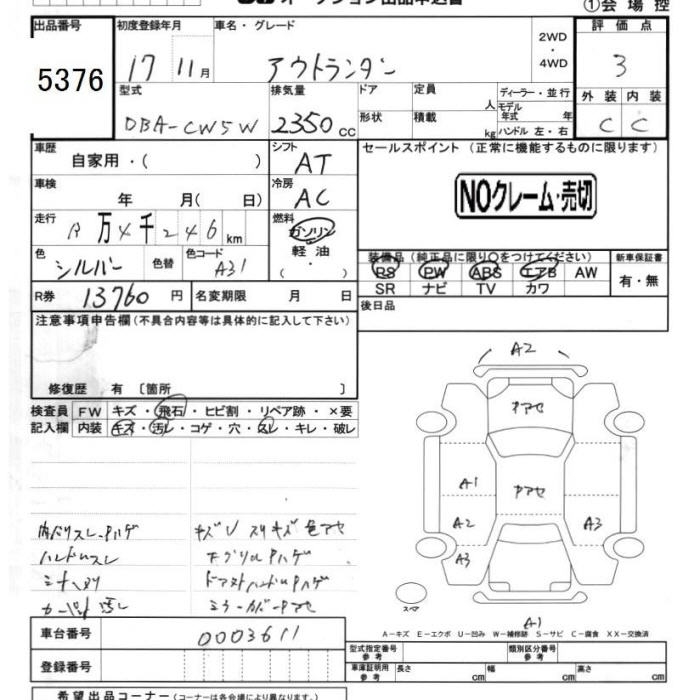 オークション出品申込書
①会場控
出品番号
5376
初度登録年月
17 11月
車名・グレード
アウトランダー
2WD
・
4WD
評価点
3
外装 内装
C C
型式
DBA-CW5W
排気量
2350cc
ドア
定員
人
ディーラー・並行
モデル年式 年
形状
積載
kg
ハンドル 左・右
車歴
自家用・( )
シフト
AT
セールスポイント (正常に機能するものに限ります)
NOクレーム・売切
車検
年 月( 日)
冷房
AC
走行
万4千246km
燃料
ガソリン
軽油
(・)
色
シルバー
色替
色コード
A31
装備品(純正品に限り○をつけてください)
PS PW ABS エアB AW
SR ナビ TV カワ
新車保証書
有・無
R券
13760円
名変期限 月 日
後日品
注意事項申告欄(不具合内容等は具体的に記入して下さい)
修復歴 有〔箇所 〕
検査員記入欄
FW キズ・飛石・ヒビ割・リペア跡・×要
内装 キズ・汚レ・コゲ・穴・スレ・キレ・破レ
内ハリスレ、Pハゲ
ハンドルスレ
シートスリ
カーペット汚レ
キズU スリキズ色アセ
下グリルPハゲ
ドアヌトハンドルPハゲ
ミラーカバーPアセ
A2
Pアセ
A1
Pアセ
A2
A3
A3
スペア
A1
A-キズ E-エクボ U-凹み W-補修跡 S-サビ C-腐食 XX-交換済
車台番号
0003611
登録番号
型式指定番号 参考
類別区分番号 参考
車庫証明用 参考
長さ cm
幅 cm
高さ cm
希望出品コーナー(コーナーは各会場により異なります。)